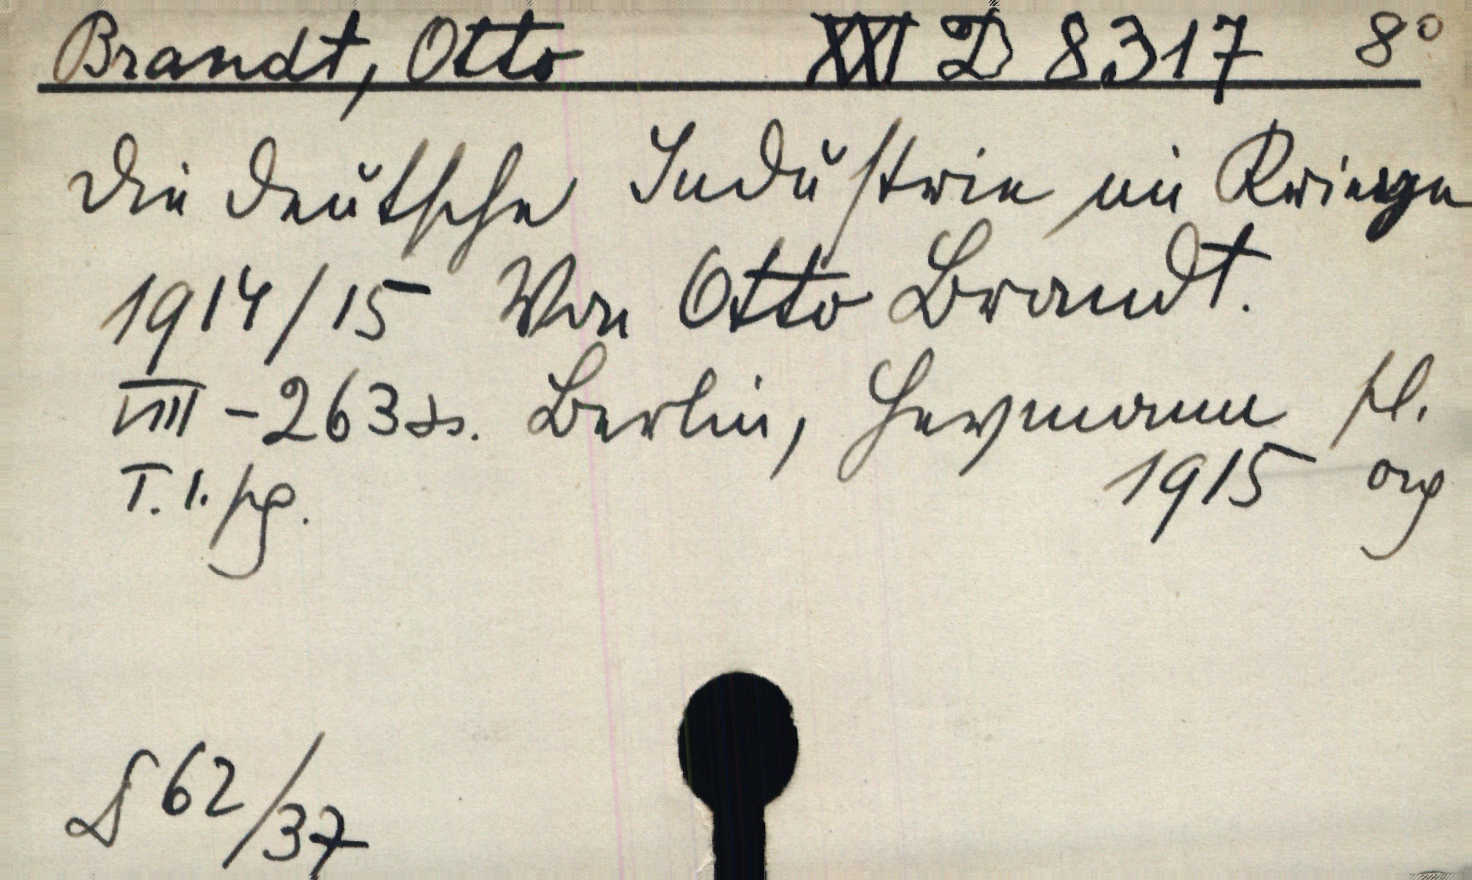 Brandt, Otto XXI D 8317 8°
Die deutsche Industrie im Kriege
1914/15 Von Otto Brandt.
VIII-263 ss. Berlin, Heymann pl.
T. 1. pg. 1915 org
62/37